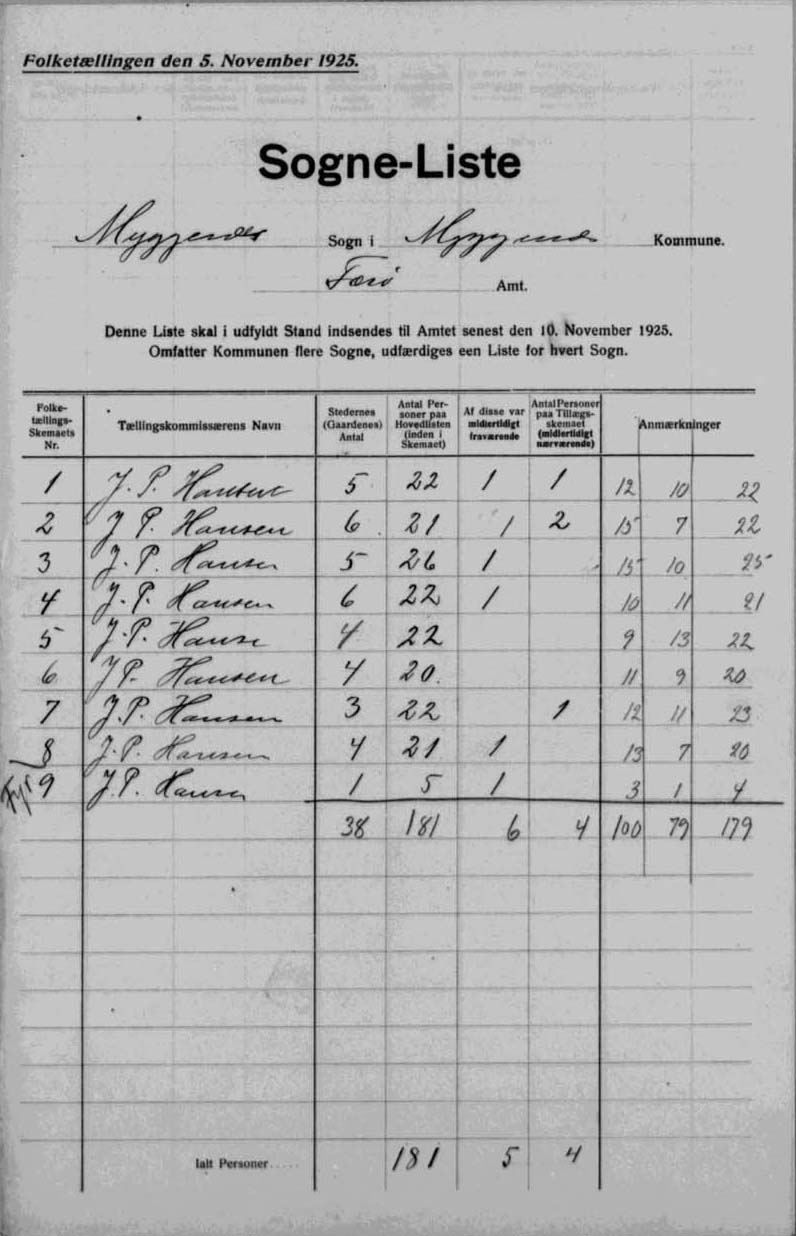 Folketællingen den 5. November 1925.
Sogne-Liste
Myggenæs Sogn i Myggenæs Kommune.
Færö Amt.
Denne Liste skal i udfyldt Stand indsendes til Amtet senest den 10. November 1925.
Omfatter Kommunen flere Sogne, udfærdiges een Liste for hvert Sogn.
Folketællings-Skemaets Nr. Tællingskommissærens Navn Stedernes (Gaardenes) Antal Antal Personer paa Hovedlisten (inden i Skemaet) Af disse var midlertidigt fraværende Antal Personer paa Tillægsskemaet (midlertidigt nærværende) Anmærkninger
1 J. P. Hansen 5 22 1 1 12 10 22
2 J P. Hansen 6 21 1 2 15 7 22
3 J. P. Hansen 5 26 1 15 10 25
4 J. P. Hansen 6 22 1 10 11 21
5 J. P. Hansen 4 22 9 13 22
6 J P. Hansen 4 20 11 9 20
7 J. P. Hansen 3 22 1 12 11 23
8 J. P. Hansen 4 21 1 13 7 20
Fyr 9 J. P. Hansen 1 5 1 3 1 4
38 181 6 4 100 79 179
Ialt Personer 181 5 4